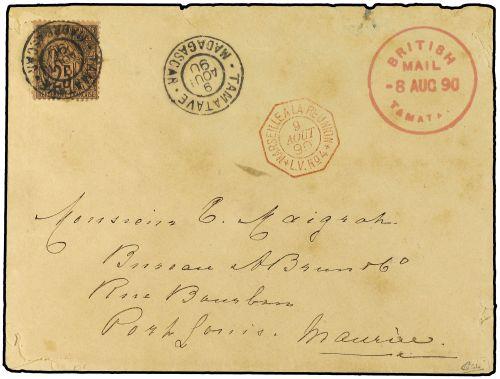 TAMATAVE
MADAGASCAR
9
AOUT
90
BRITISH
MAIL
-8 AUG 90
TAMATA
MARSEILLE A LA RÉUNION
9
AOUT
90
L.V. No 4
Monsieur C. Maigrot
Bureau A Brun & Co
Rue Bourbon
Port Louis. Maurice.